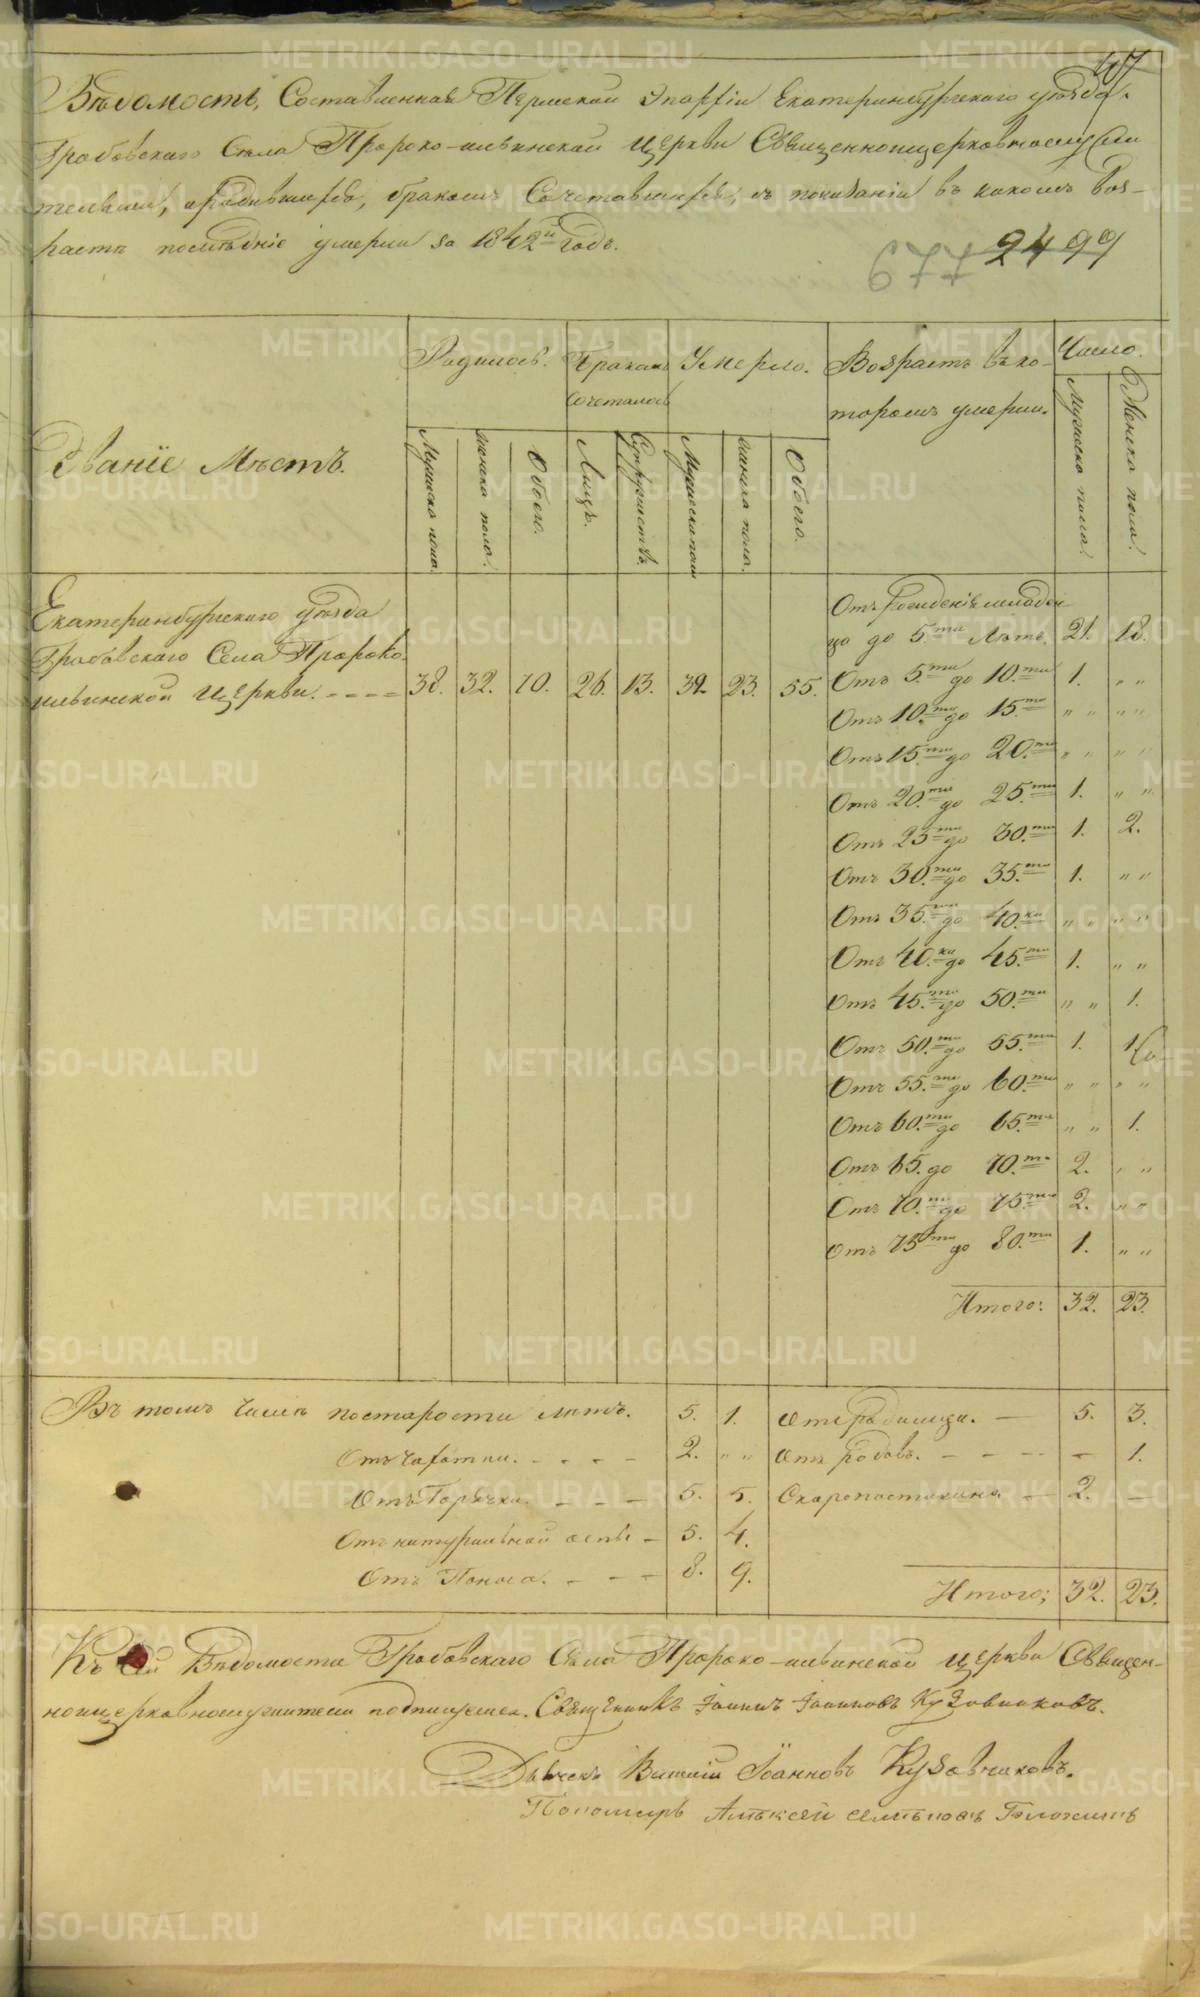 47
Вѣдомость, Составленная Пермской Эпархіи Екатеринбургскаго уѣзда.
Грабовскаго Села Пророко-ильинской Церкви Священноцерковнослужи
тельми, о родившихся, бракомъ Сочетавшихся, съ показаніемъ въ какомъ воз-
растѣ послѣдніе умерли за 1842й годъ.
2499
779
Званіе Мѣстъ.
Родилось.
Мужеска пола.
Женска пола.
Обоего.
Бракомъ Сочеталось
Лицъ.
Супружествъ.
Умерло.
Мужеска пола
Женска пола.
Обоего.
Возрастъ въ ко-
торомъ умерли.
Число.
Мужеска пола.
Женска пола.
Екатеринбургскаго уѣзда
Грабовскаго Села Пророко-
ильинской Церкви. - - - - 38. 32. 70. 26. 13. 32. 23. 55.
Отъ рожденія младен-
ца до 5.ти Лѣтъ. 21. 18.
Отъ 5.ти до 10.ти 1. " "
Отъ 10.ти до 15.ти " " " "
Отъ 15.ти до 20.ти " " " "
Отъ 20.ти до 25.ти 1. " "
Отъ 25.ти до 30.ти 1. 2.
Отъ 30.ти до 35.ти 1. " "
Отъ 35.ти до 40.ка " " " "
Отъ 40.ка до 45.ти 1. " "
Отъ 45.ти до 50.ти " " 1.
Отъ 50.ти до 55.ти 1. 1
Отъ 55.ти до 60.ти " " " "
Отъ 60.ти до 65.ти " " 1.
Отъ 65. до 70.ти 2. " "
Отъ 70.ти до 75.ти 2. " "
Отъ 75ти до 80.ти 1. " "
Итого: 32. 23.
Въ томъ числѣ постарости лѣтъ. 5. 1. Отъ Родимца. — 5. 3.
Отъ Чахотки. - - - - 2. " " Отъ родовъ. - - - - - 1.
Отъ Горячки. - - - 5. 5. Скоропостижно. — 2. —
Отъ натуральной оспы - 5. 4.
Отъ Поноса. - - - 8. 9.
Итого; 32. 23.
Къ сей Вѣдомости Грабовскаго Села Пророко-ильинской церкви Священ-
ноцерковнослужители подписуемся. Священникъ Іоаннъ Іоанновъ Кузовниковъ.
Дьячекъ Василій Іоанновъ Кузовниковъ.
Пономарь Алѣксѣй
METRIKI.GASO-URAL.RU